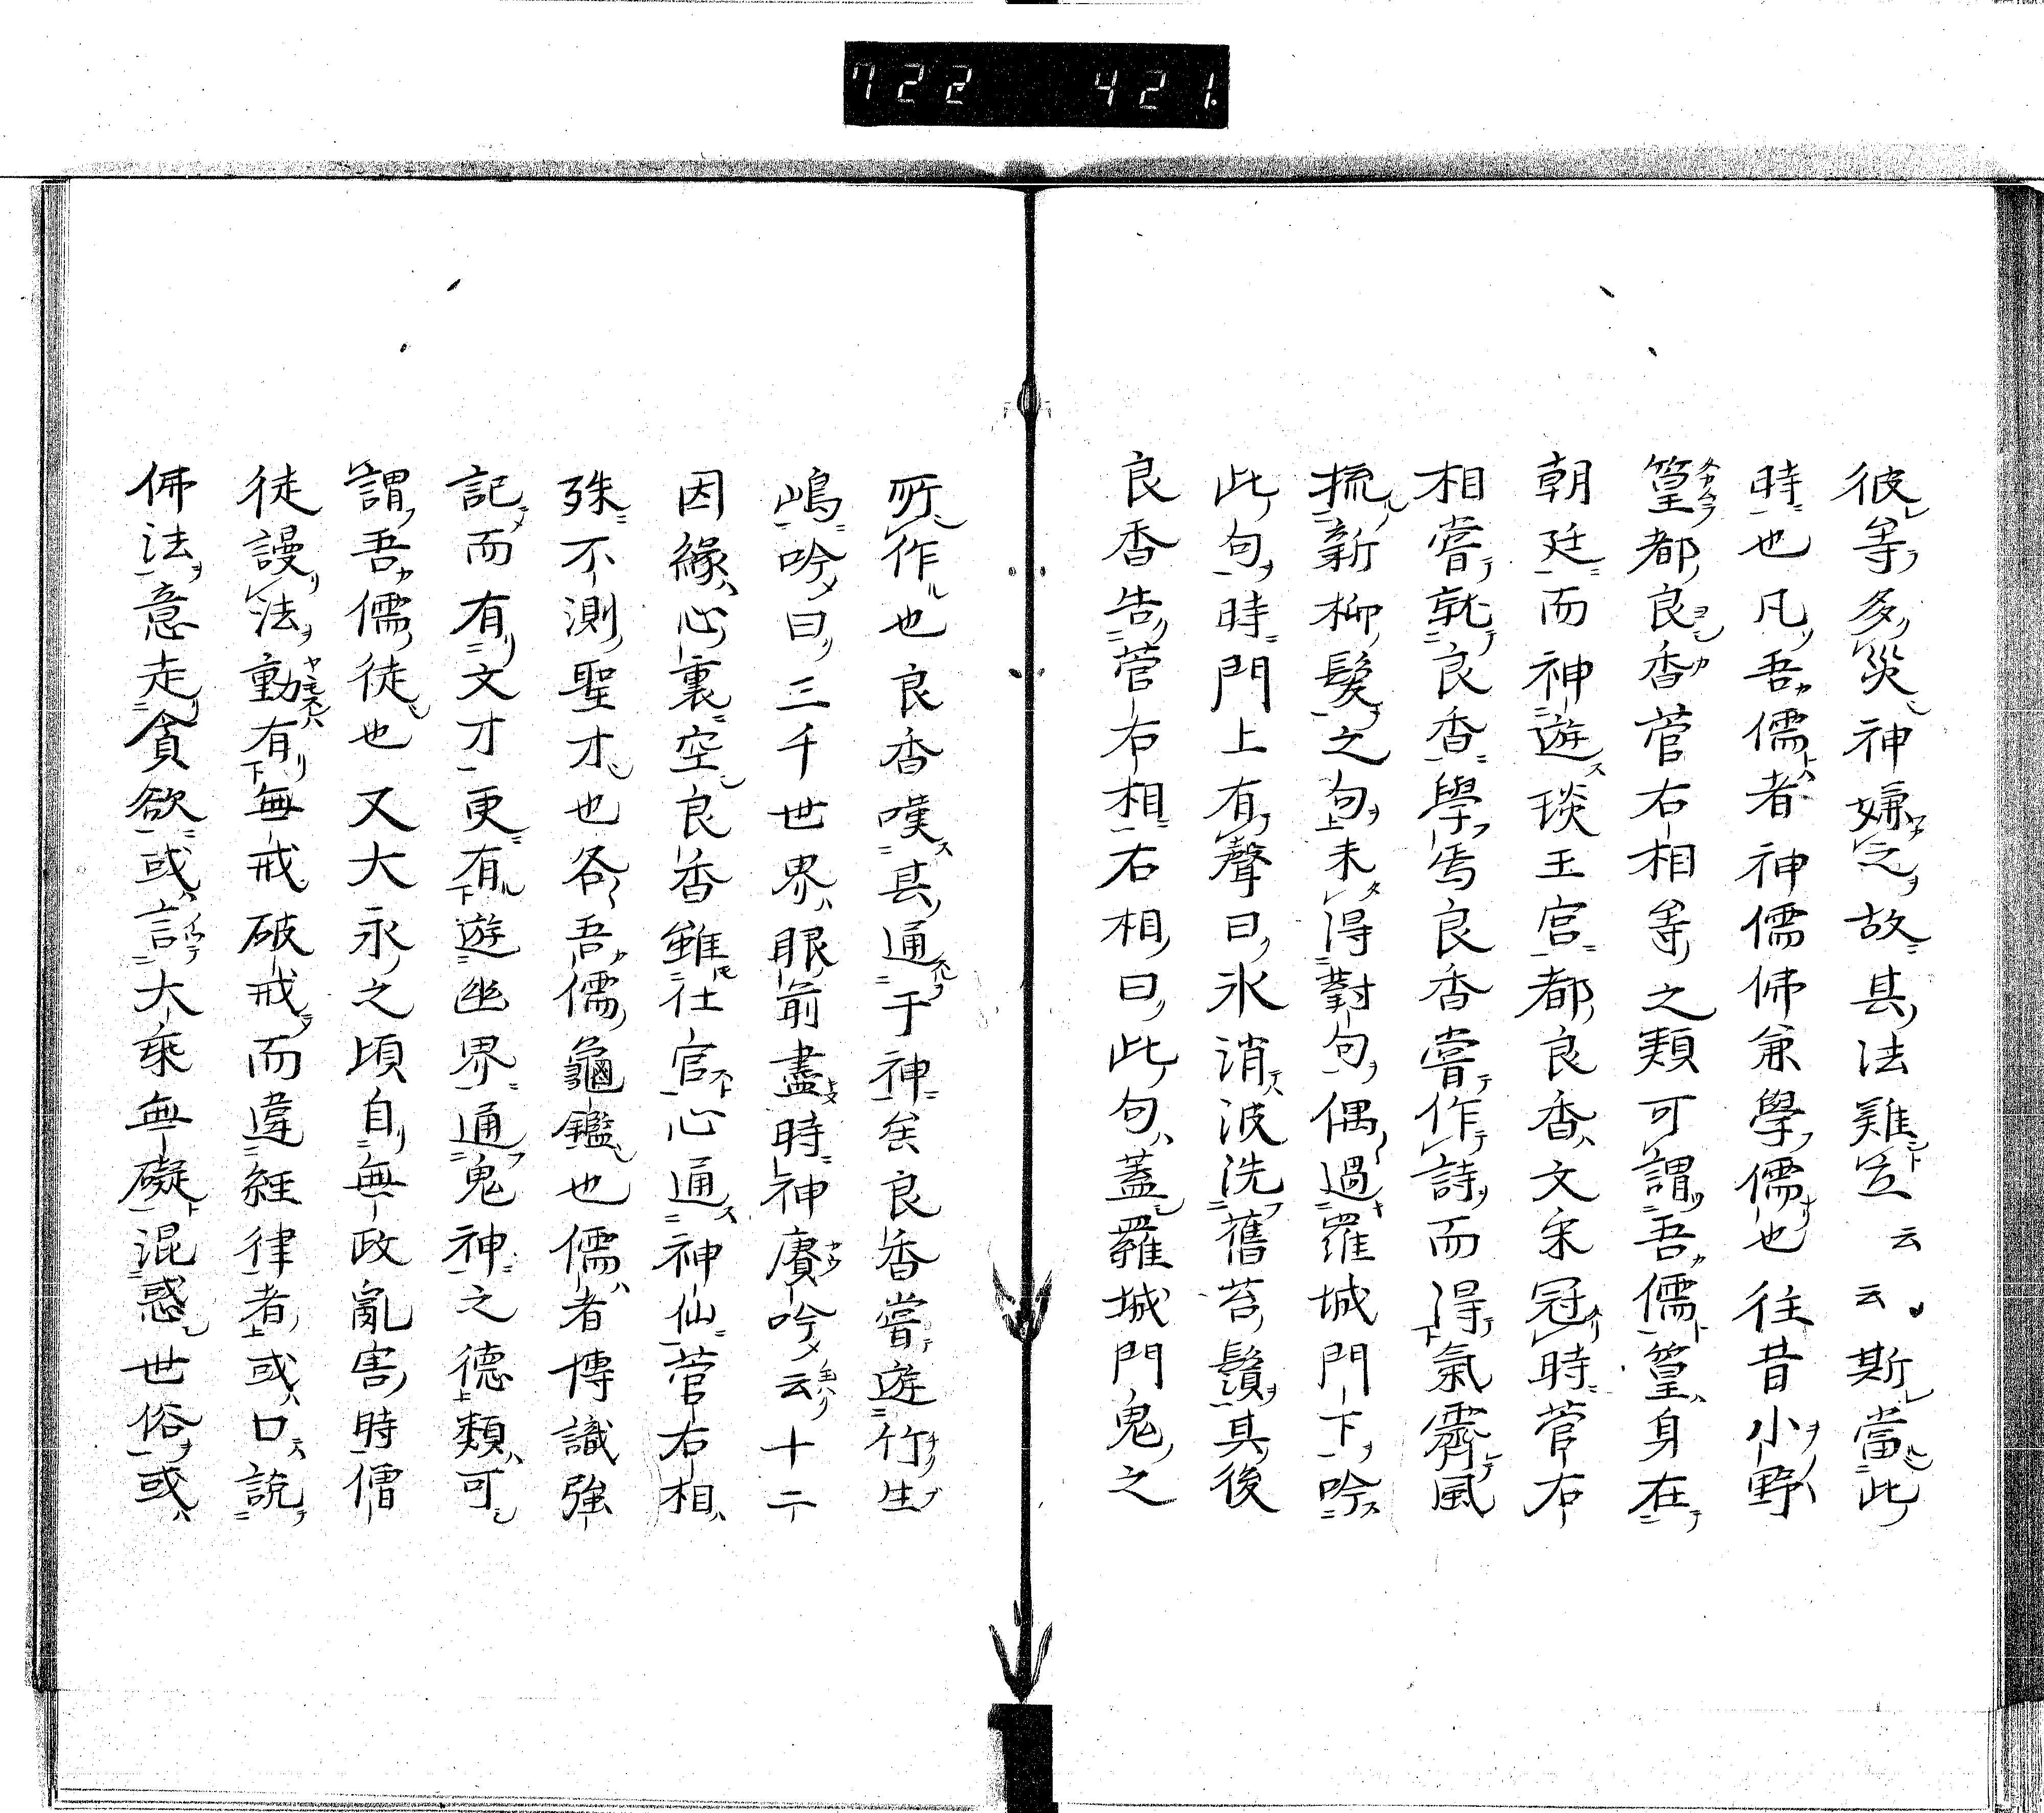 722 421.
彼等多災神嫌之故其法難立云云斯當此
時也凡吾儒者神儒佛兼學儒也往昔小野
篁都良香菅右相等之類可謂吾儒篁身在
朝廷而神遊琰王宮都良香文宋冠時菅右
相嘗就良香學焉良香嘗作詩而得氣霽風
梳新柳髮之句未得對句偶過羅城門下吟
此句時門上有聲曰氷消波洗舊苔鬚其後
良香告菅右相右相曰此句蓋羅城門鬼之
所作也良香嘆其通于神矣良香嘗遊竹生
嶋吟曰三千世界眼前盡時神賡吟云十二
因緣心裏空良香雖仕官心通神仙菅右相
殊不測聖才也各吾儒龜鑑也儒者博識強
記而有文才更有遊幽界通鬼神之德類可
謂吾儒徒也又大永之頃自無政亂害時僧
徒謾法動有無戒破戒而違經律者或口說
佛法意走貪欲或言大乘無礙混惑世俗或